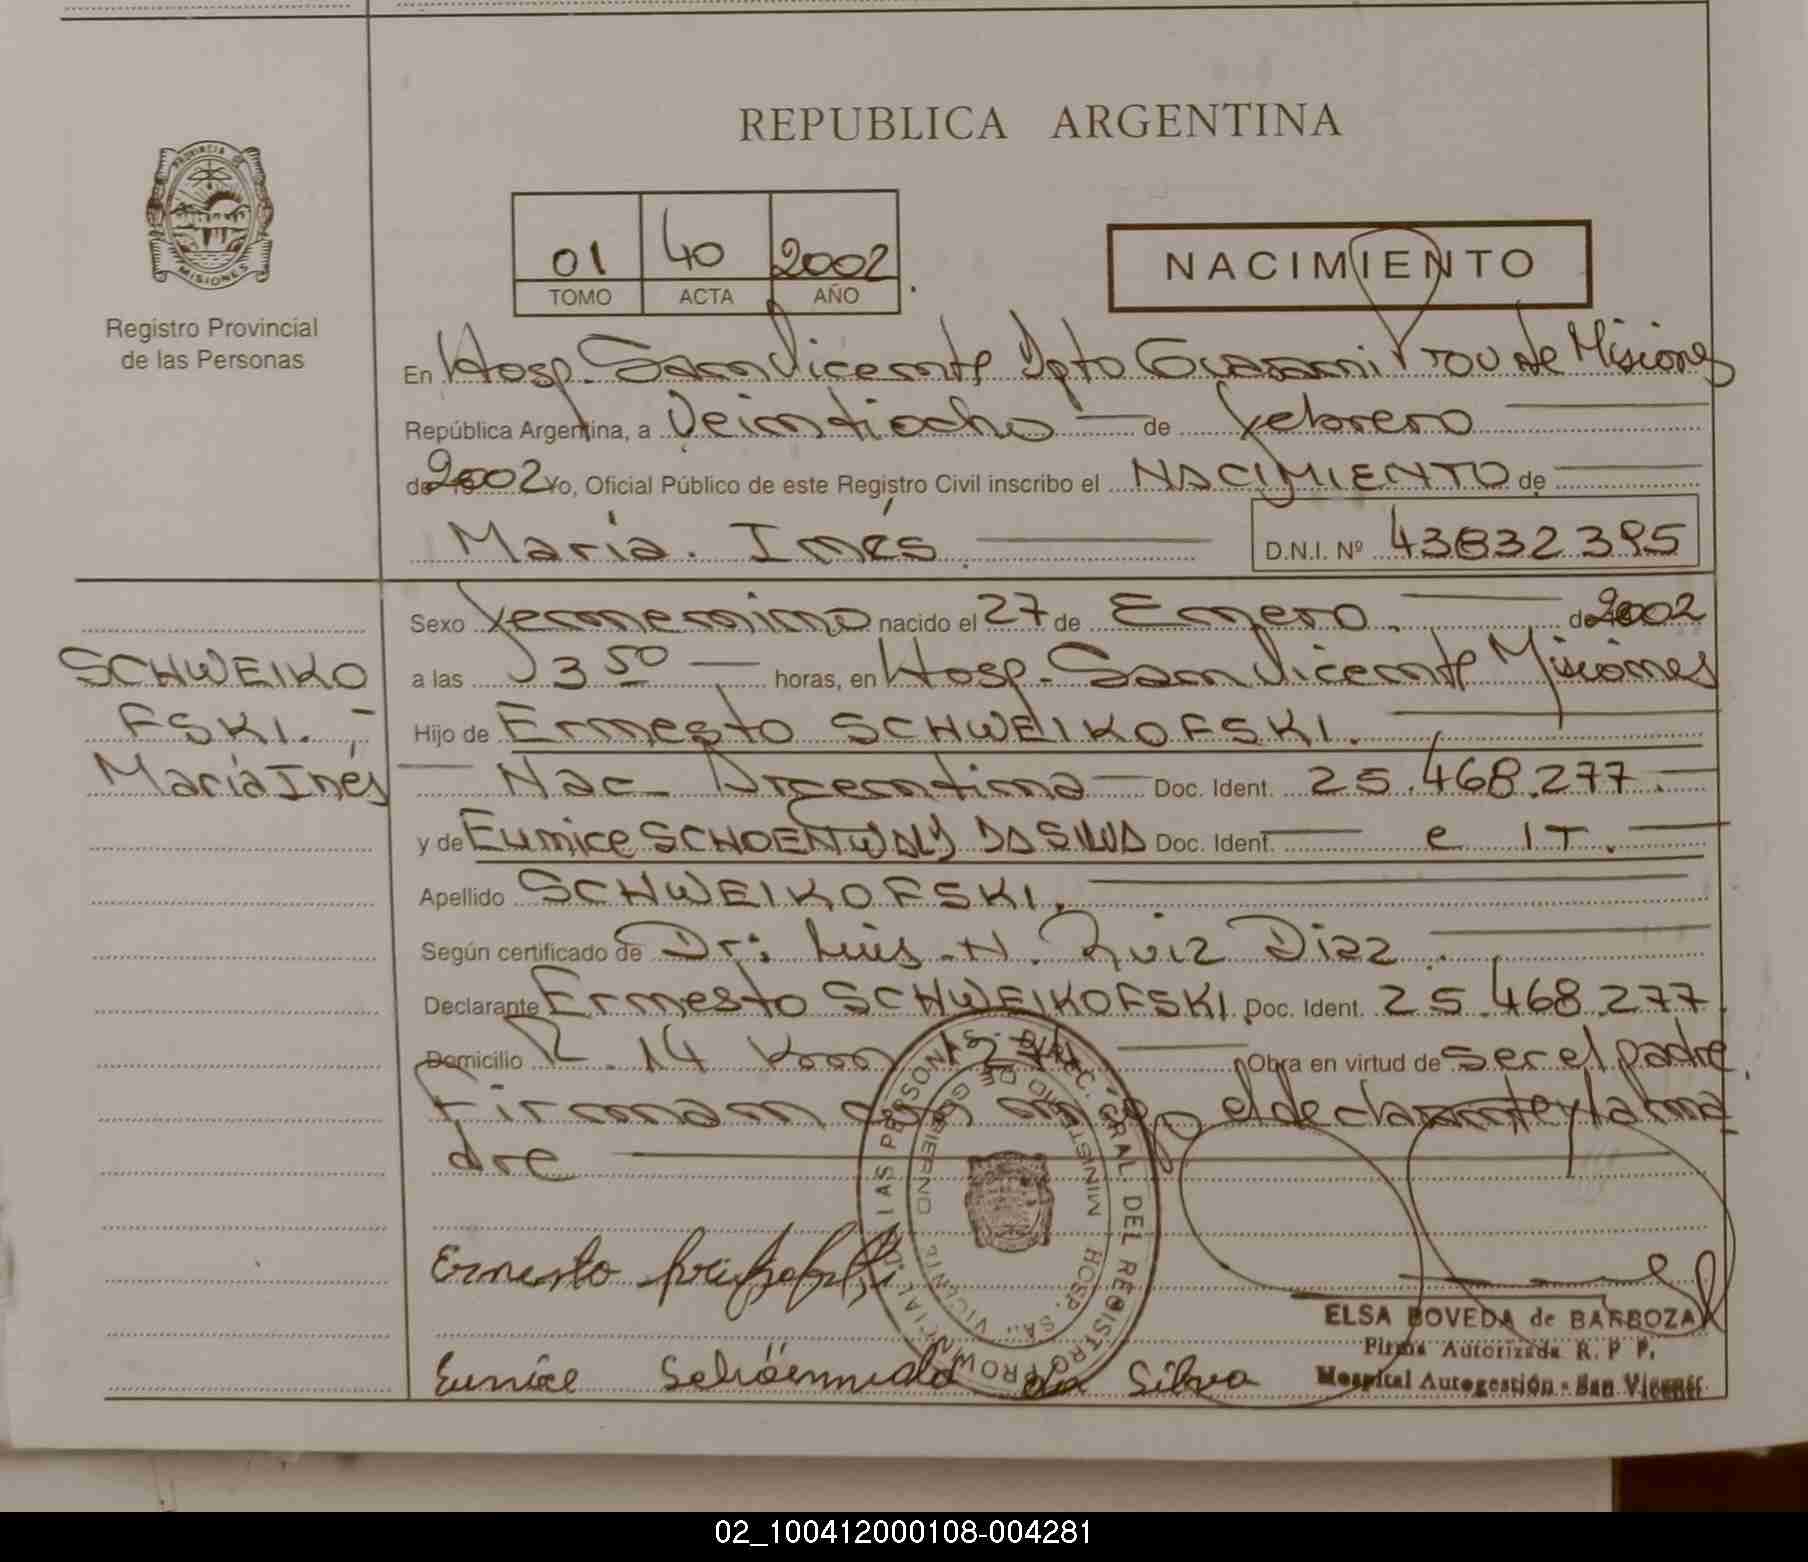 REPUBLICA ARGENTINA
PROVINCIA DE
MISIONES
Registro Provincial
de las Personas
01 40 2002
TOMO ACTA AÑO
NACIMIENTO
En Hosp. San Vicente Dpto Guarani Prov de Misiones
República Argentina, a Veintiocho de febrero
de 2002 Yo, Oficial Público de este Registro Civil inscribo el NACIMIENTO de
María Inés D.N.I. Nº 43832395
SCHWEIKO
FSKI.-
María Inés
Sexo femenino nacido el 27 de Enero. de 2002
a las 3 50 horas, en Hosp. San Vicente Misiones
Hijo de Ernesto SCHWEIKOFSKI.
Nac. Argentina Doc. Ident. 25.468.277.
y de Eunice SCHOENWALD DA SILVA Doc. Ident. e IT.
Apellido SCHWEIKOFSKI.
Según certificado de Dr: Luis. N. Ruiz Diaz.
Declarante Ernesto SCHWEIKOFSKI. Doc. Ident. 25.468.277.
Domicilio R. 14 Km Obra en virtud de ser el padre.
Firman con migo el declarante y la ma
dre
DIREC. GRAL. DEL REGISTRO PROVINCIAL DE LAS PERSONAS
MINISTERIO DE GOBIERNO
HOSP. SAN VICENTE
Ernesto
ELSA BOVEDA de BARBOZA
Firma Autorizada R. P. P.
Hospital Autogestión - San Vicente
Eunice Schöenwald da Silva
02_100412000108-004281